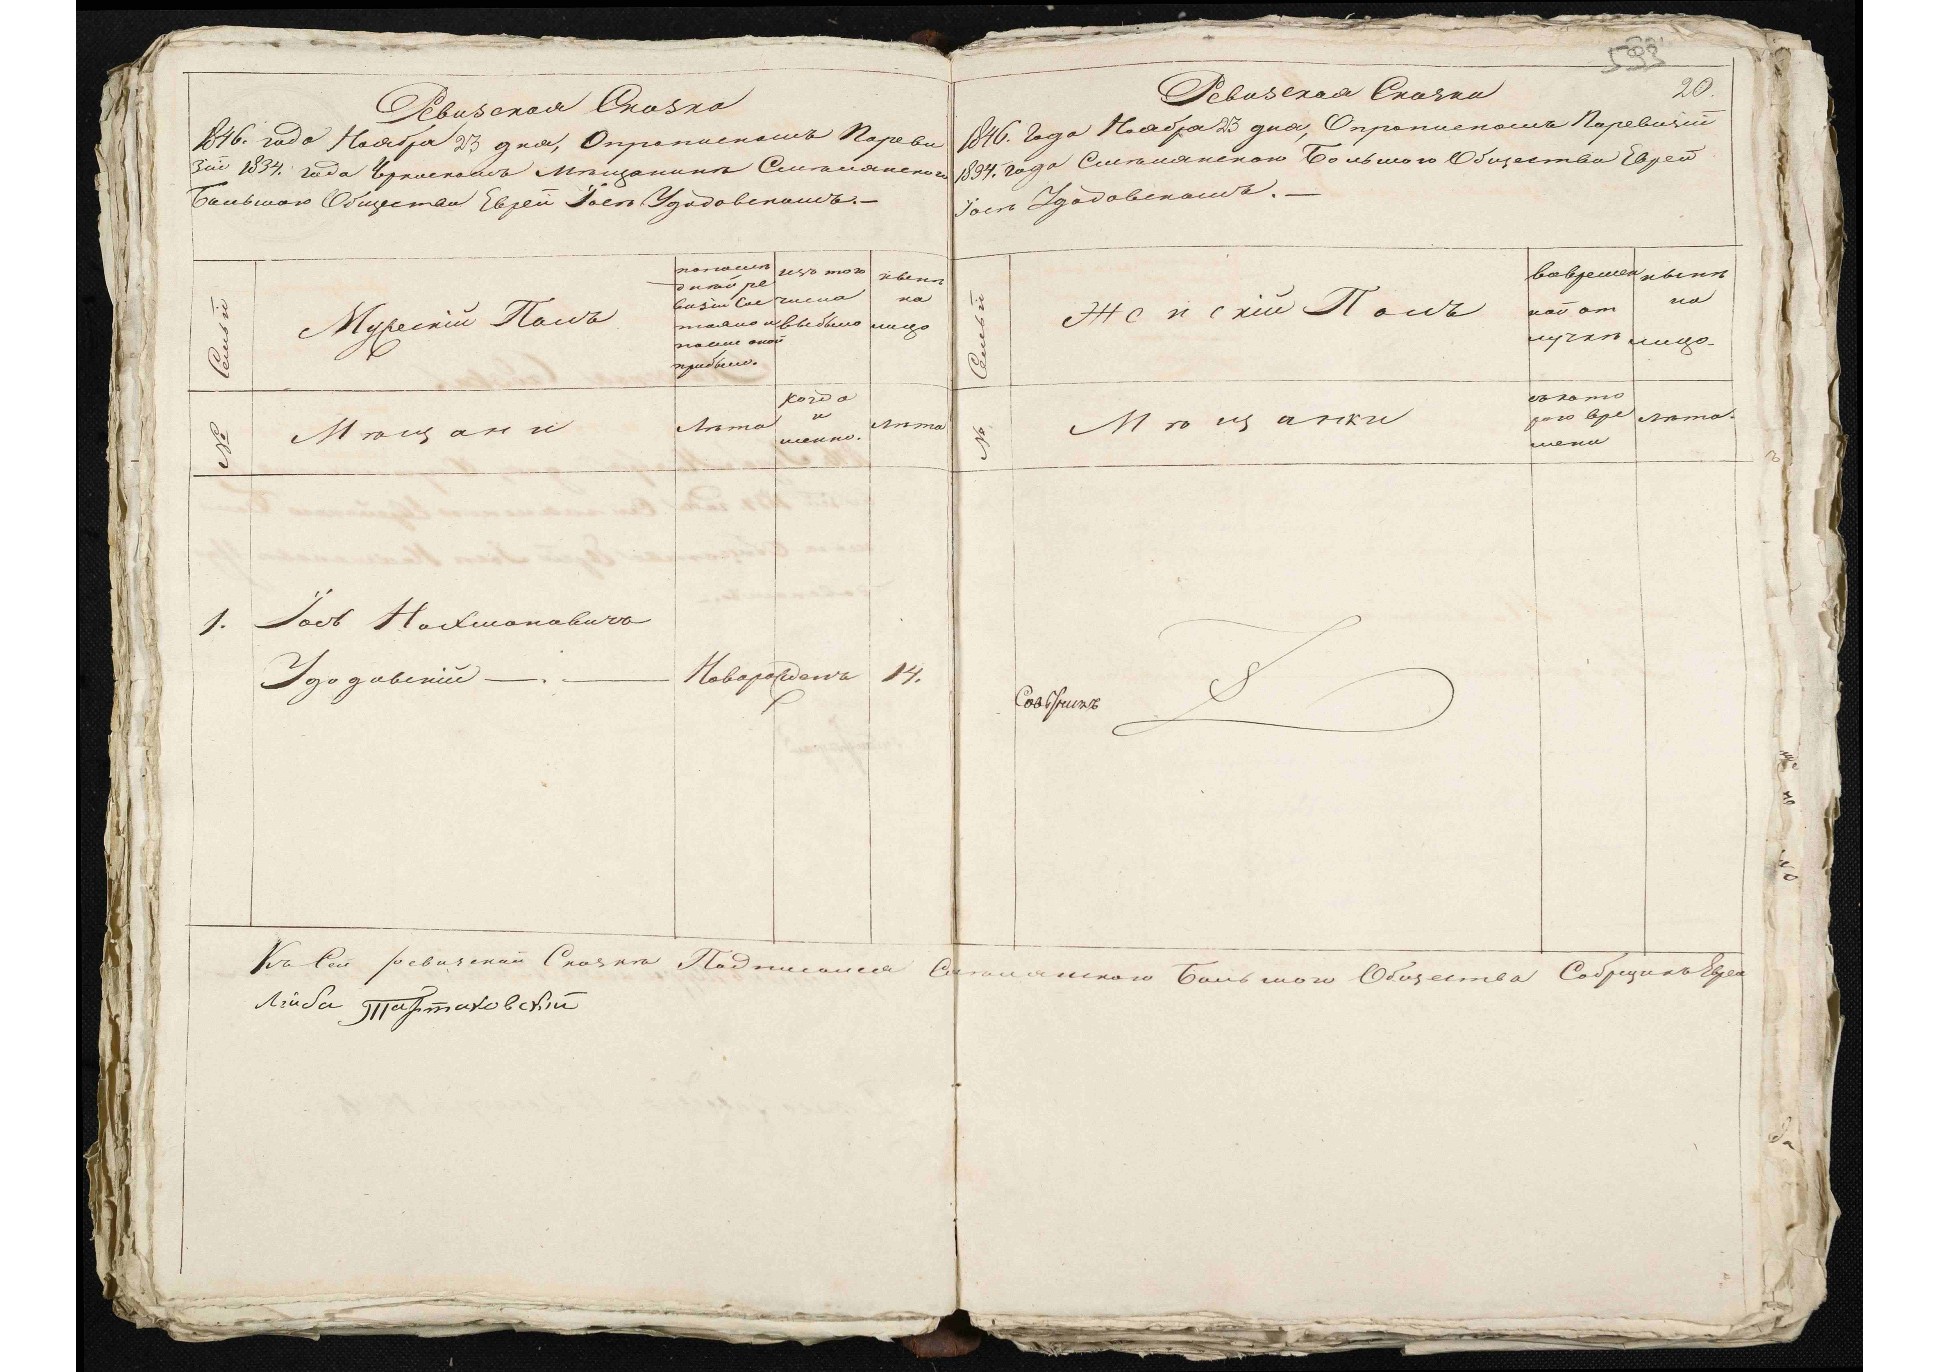 Ревизская Сказка
1846. года Ноября 23 дня, О прописномъ Пореви
зіи 1834. года Черкаскомъ мѣщанинѣ Смѣлянскаго
Большаго Общества Еврей Іосѣ Удодовскомъ. —
Семьи
Мужескій Полъ
попослѣ
дней ре
визіи сос
тояло и
после оной
прибыло.
изъ того
числа
выбыло
нынѣ
на
лицо
№
Мѣщани
Лѣта
когда
и
менно.
Лѣта
1. Іось Нахмановичъ
Удодовскій — . — Новорожденъ 14.
20.
Ревизская Сказка
1846. Года Ноября 23 дня, О прописномъ Поревизіи
1834. года Смѣлянскаго Большаго Общества Еврей
Іосѣ Удодовскомъ. —
Семьи
Женскій Полъ
вовремен
ной от
лучкѣ
нынѣ
на
лицо
№
Мѣщанки
съкото
раго вре
мени
Лѣта.
Къ Сей ревизской Сказкѣ Подписался Смѣлянскаго Большаго Общества Сборщикъ Еврей
Лейба Тартаковскій